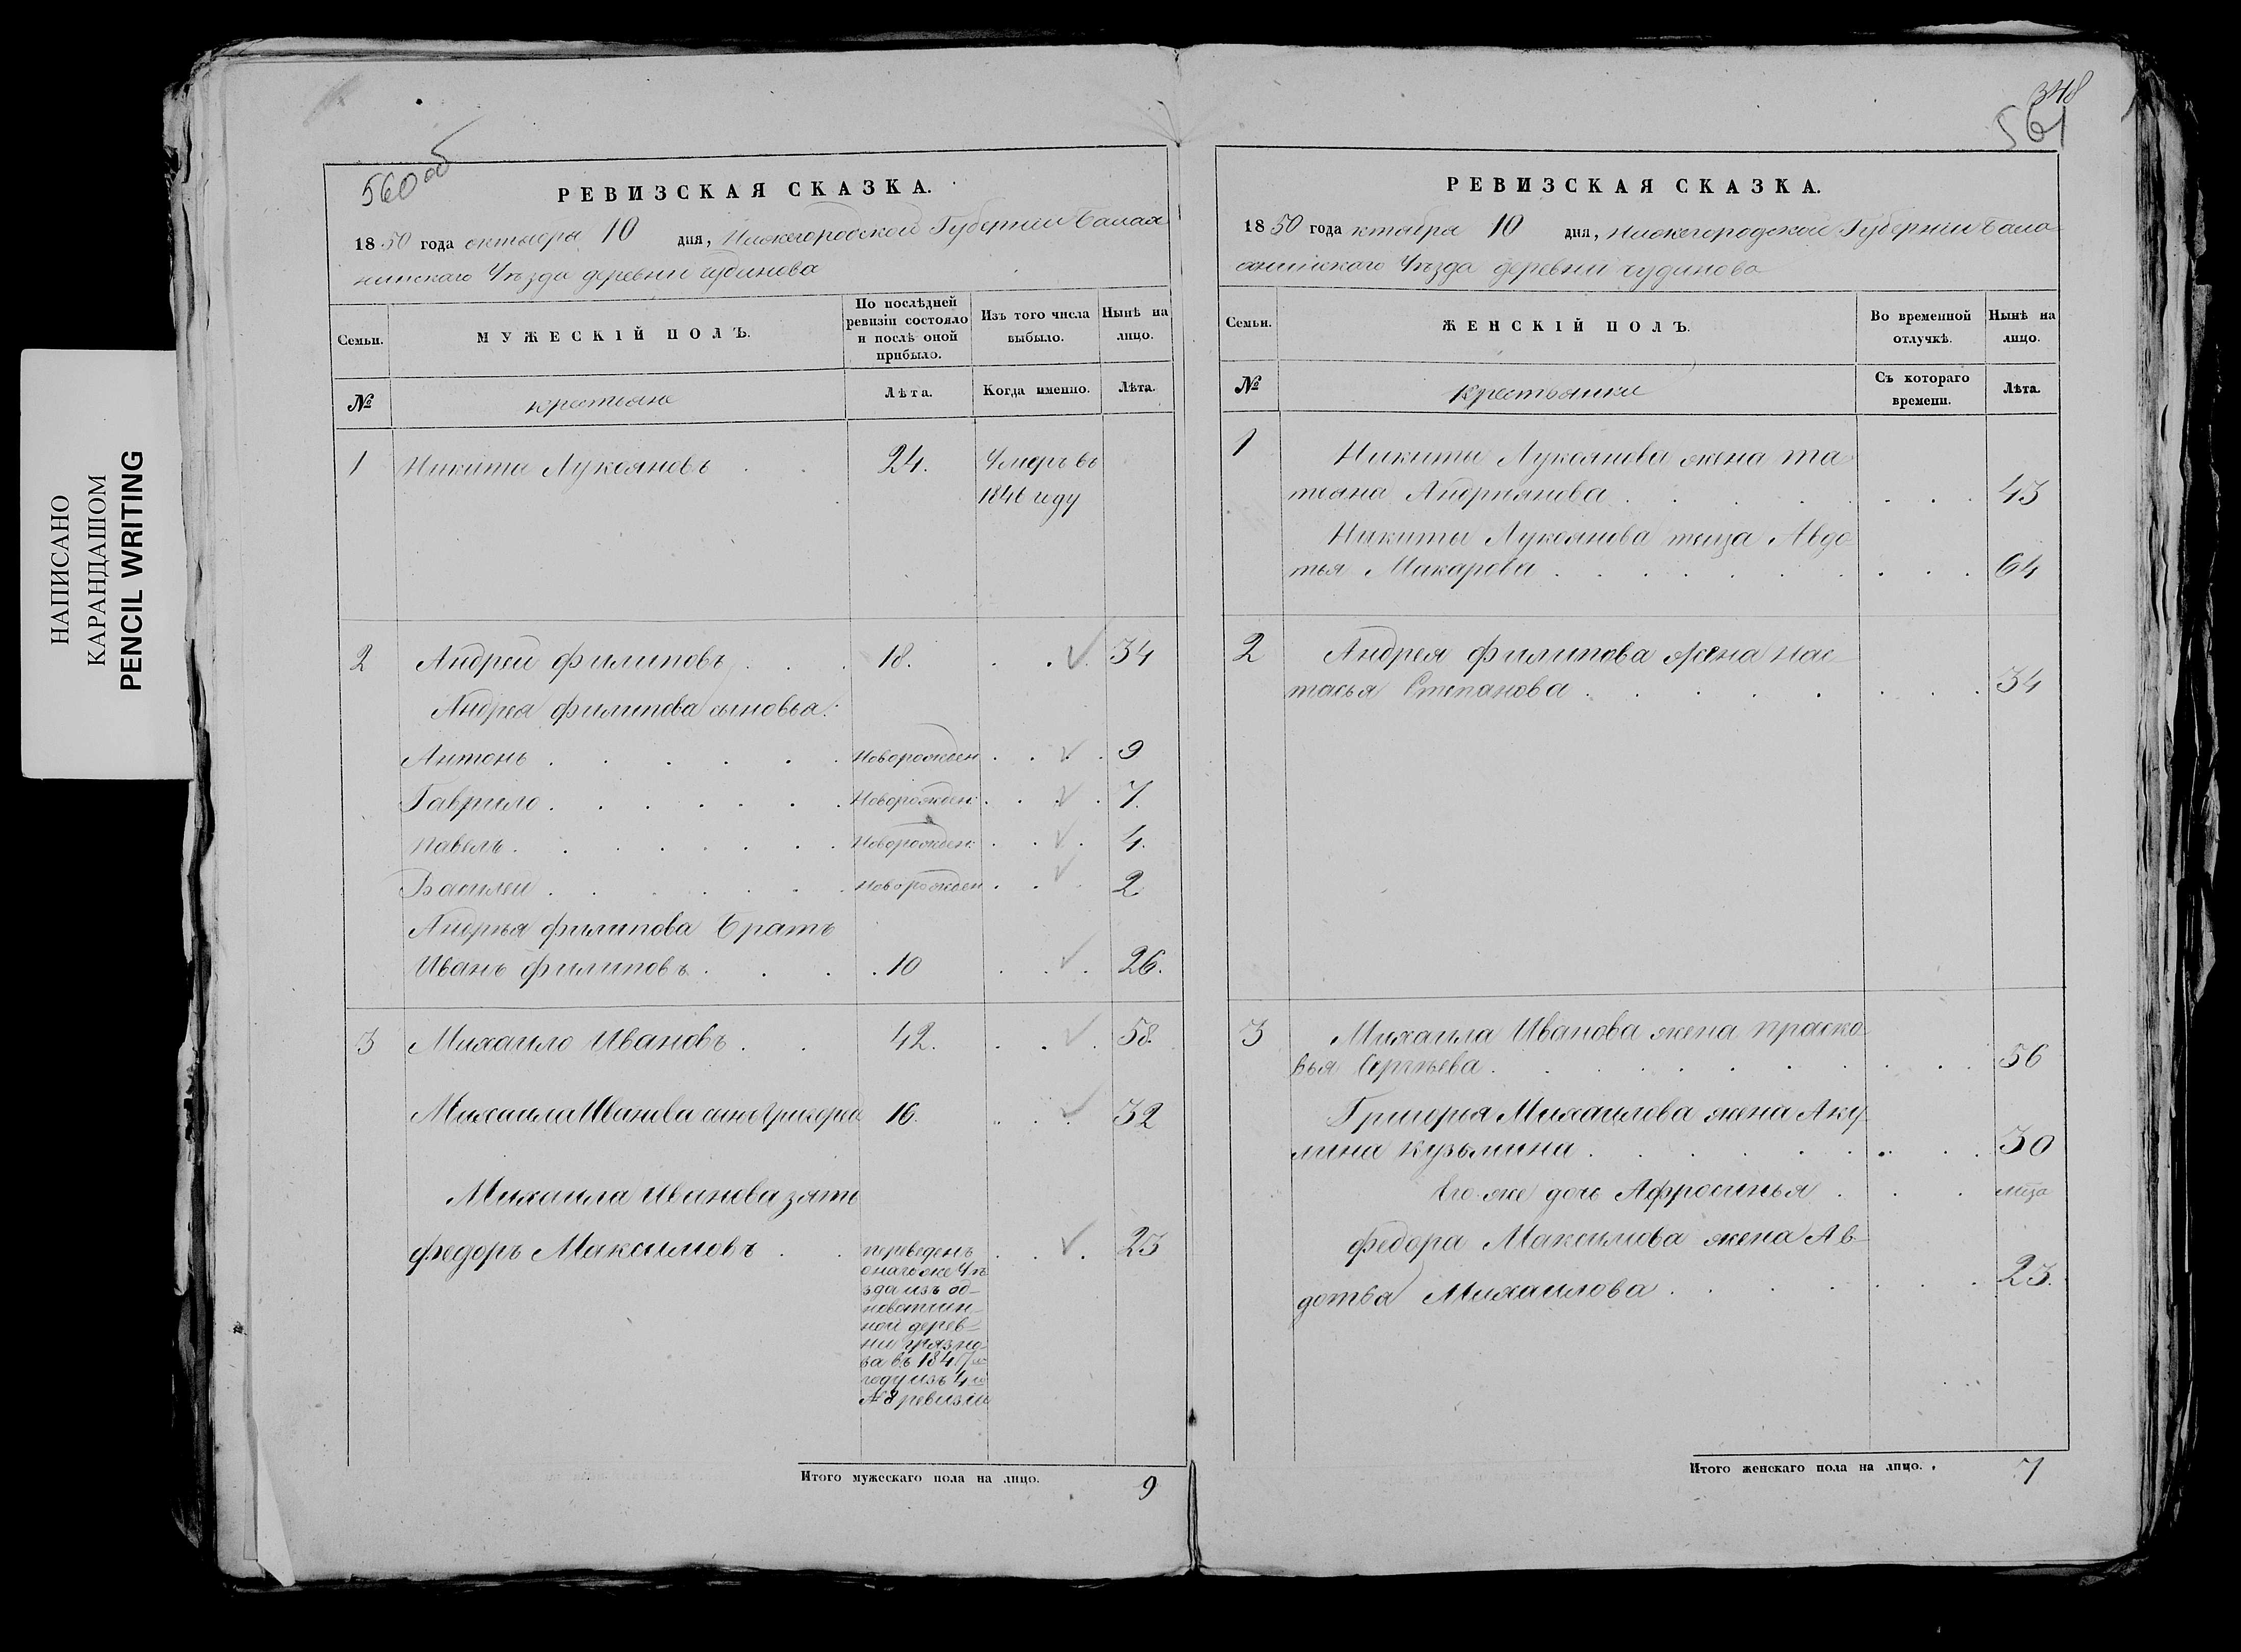 НАПИСАНО
КАРАНДАШОМ
PENCIL WRITING
560 об
РЕВИЗСКАЯ СКАЗКА.
1850 года октября 10 дня, Нижегородской Губернии Балах
нинскаго Уѣзда деревни чудинова
Семьи.
МУЖЕСКІЙ ПОЛЪ.
По послѣдней
ревизіи состояло
и послѣ оной
прибыло.
Изъ того числа
выбыло.
Нынѣ на
лицо.
№
крестьяне
Лѣта.
Когда именно.
Лѣта.
1 Никита Лукояновъ . . 24. Умеръ въ
1846 году
2 Андрей филиповъ . . . 18. . . 34
Андрея филипова сыновья:
Антонъ . . . . . . Новорожден . . . 9
Гаврило . . . . . . Новорожден: . . . 7.
павелъ . . . . . . . Новорожден: . . . 4.
Василей . . . . . . Новорожден . . . 2
Андрея филипова братъ
Иванъ филиповъ . . . . 10 . . . 26.
3 Михаило Ивановъ . . 42. . . . 58.
Михаила Иванова сынъ Григорей 16. . . . 32
Михаила Иванова зять
федоръ Максимовъ . . переведенъ . . . 23
онагоже Уѣ
зда изъ од-
новотчин-
ной дерев-
ни грязно-
ва въ 1847 м
году изъ 4 го
№ 8 ревизіи
Итого мужескаго пола на лицо. 9
348
561
РЕВИЗСКАЯ СКАЗКА.
1850 года ктября 10 дня, Нижегородской Губерніи Бала
хнинскаго Уѣзда деревни чудинова
Семьи.
ЖЕНСКІЙ ПОЛЪ.
Во временной
отлучкѣ.
Нынѣ на
лицо.
№
Крестьянки
Съ котораго
времени.
Лѣта.
1 Никиты Лукоянова жена та
тьяна Андриянова . . . . . . . . 43
Никиты Лукоянова теща Авдо
тья Макарова . . . . . . . . . . 64
2 Андрея филипова жена Нас-
тасья Степанова . . . . . . . . 34
3 Михаила Иванова жена праско
вья Сергѣева . . . . . . . . . . 56
Григорья Михаилова жена Аку
лина кузьмина . . . . . . . . . 30
Его же дочь Афросинья . . .
федора Максимова жена Ав-
дотья Михаилова . . . . . . . 23.
Итого женскаго пола на лицо. . 7